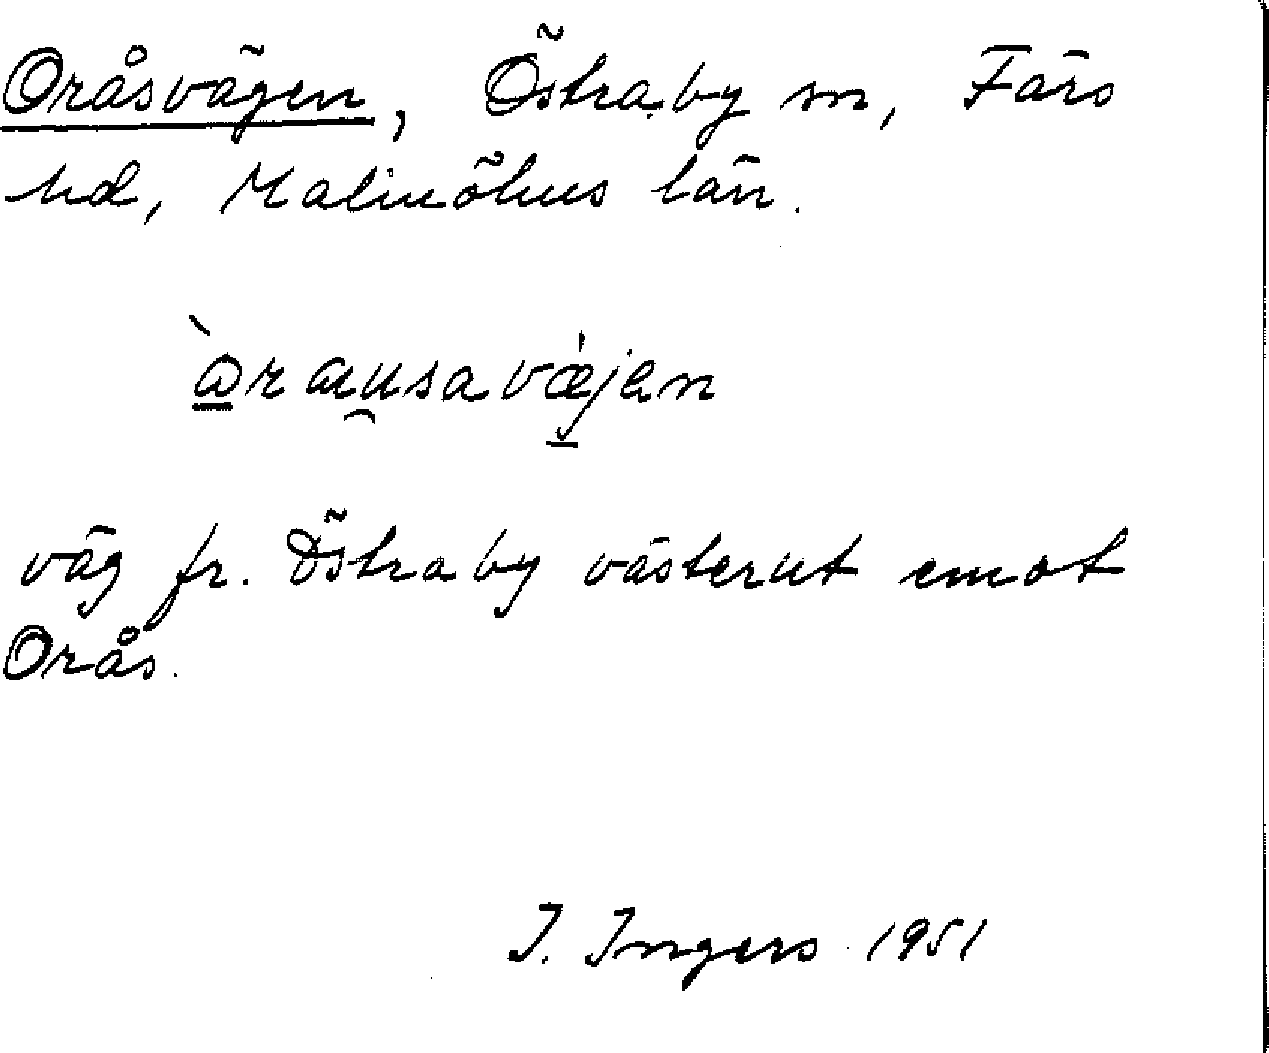 Oråsvägen, Östraby sn, Färs
hd, Malmöhus län.
àrausavæjen
väg fr. Östraby västerut emot
Orås.
I. Ingers 1951